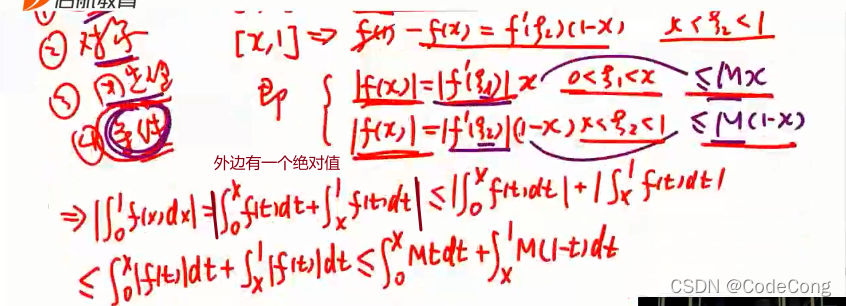 ② 对谁 [x,1] ⇒ f(1) - f(x) = f'(ξ₂)(1-x), x<ξ₂<1
③
即 { |f(x)| = |f'(ξ₁)| x 0<ξ₁<x ≤ Mx
④ |f(x)| = |f'(ξ₂)|(1-x) x<ξ₂<1 ≤ M(1-x)
外边有一个绝对值
⇒ |∫₀¹ f(x)dx| = |∫₀ˣ f(t)dt + ∫ₓ¹ f(t)dt| ≤ |∫₀ˣ f(t)dt| + |∫ₓ¹ f(t)dt|
≤ ∫₀ˣ |f(t)|dt + ∫ₓ¹ |f(t)|dt ≤ ∫₀ˣ Mt dt + ∫ₓ¹ M(1-t)dt
CSDN @CodeCong